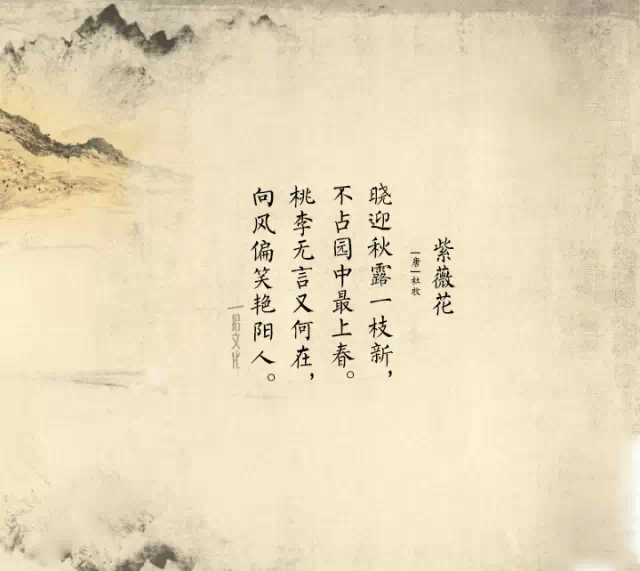 紫薇花
[唐]杜牧
晓迎秋露一枝新，
不占园中最上春。
桃李无言又何在，
向风偏笑艳阳人。